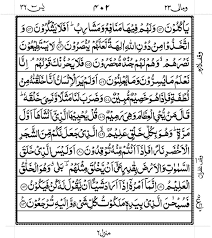 ومالی ٢٣
٤٠٢
يٰسٓ ٣٦
يَاْكُلُوْنَ۝ وَلَهُمْ فِيْهَا مَنَافِعُ وَمَشَارِبُ ؕ اَفَلَا يَشْكُرُوْنَ۝ وَ
اتَّخَذُوْا مِنْ دُوْنِ اللّٰهِ اٰلِهَةً لَّعَلَّهُمْ يُنْصَرُوْنَ۝ لَا يَسْتَطِيْعُوْنَ
نَصْرَهُمْ ۙ وَهُمْ لَهُمْ جُنْدٌ مُّحْضَرُوْنَ۝ فَلَا يَحْزُنْكَ قَوْلُهُمْ ۘ اِنَّا
نَعْلَمُ مَا يُسِرُّوْنَ وَمَا يُعْلِنُوْنَ۝ اَوَلَمْ يَرَ الْاِنْسَانُ اَنَّا خَلَقْنٰهُ
مِنْ نُّطْفَةٍ فَاِذَا هُوَ خَصِيْمٌ مُّبِيْنٌ۝ وَضَرَبَ لَنَا مَثَلًا وَّنَسِيَ خَلْقَهٗ ؕ
قَالَ مَنْ يُّحْيِ الْعِظَامَ وَهِيَ رَمِيْمٌ۝ قُلْ يُحْيِيْهَا الَّذِيْٓ اَنْشَاَهَآ اَوَّلَ
مَرَّةٍ ؕ وَهُوَ بِكُلِّ خَلْقٍ عَلِيْمٌ۝ الَّذِيْ جَعَلَ لَكُمْ مِّنَ الشَّجَرِ
الْاَخْضَرِ نَارًا فَاِذَآ اَنْتُمْ مِّنْهُ تُوْقِدُوْنَ۝ اَوَلَيْسَ الَّذِيْ خَلَقَ
السَّمٰوٰتِ وَالْاَرْضَ بِقٰدِرٍ عَلٰٓى اَنْ يَّخْلُقَ مِثْلَهُمْ ؕ بَلٰى ۗ وَهُوَ الْخَلّٰقُ
الْعَلِيْمُ۝ اِنَّمَآ اَمْرُهٗٓ اِذَآ اَرَادَ شَيْـًٔا اَنْ يَّقُوْلَ لَهٗ كُنْ فَيَكُوْنُ۝
فَسُبْحٰنَ الَّذِيْ بِيَدِهٖ مَلَكُوْتُ كُلِّ شَيْءٍ وَّاِلَيْهِ تُرْجَعُوْنَ۝